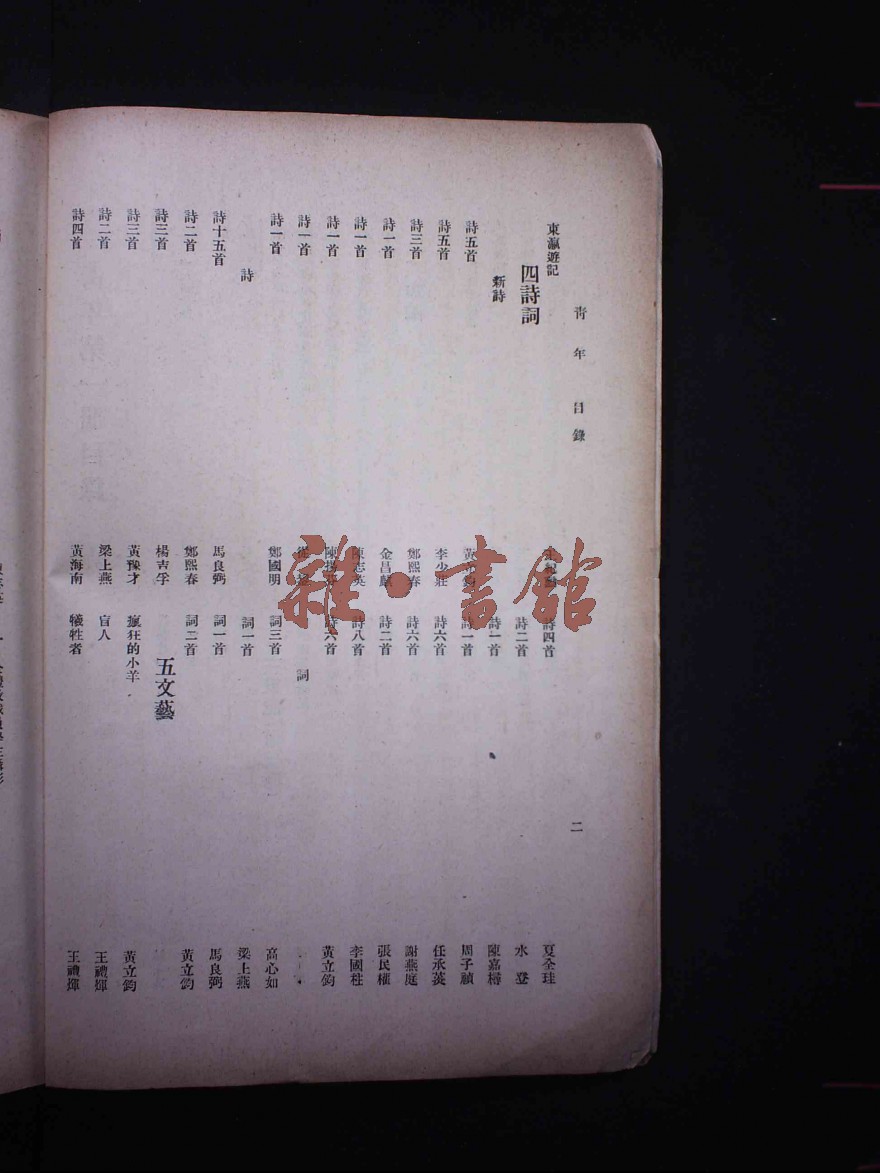 青年目錄 二
東瀛遊記
四詩詞
新詩
詩五首 黃 鈞
詩五首 李少壯
詩三首 鄭熙春
詩一首 金昌
詩一首 陳志英
詩一首 陳
詩一首
詩一首 鄭國明
詩
詩十五首 馬良弼
詩二首 鄭熙春
詩三首 楊吉孚
詩三首 黃豫才
詩二首 梁上燕
詩四首 黃海南
詩四首 夏全珪
詩二首 水登
詩一首 陳嘉樽
詩一首 周子禎
詩六首 任承蓂
詩六首 謝燕庭
詩二首 張民權
詩八首 李國柱
詩六首 黃立鈞
詞
詞三首 高心如
詞一首 梁上燕
詞一首 馬良弼
詞二首 黃立鈞
五文藝
瘋狂的小羊 黃立鈞
盲人 王禮
犧牲者 王禮
雜·書館